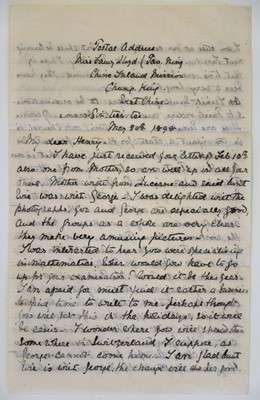 Postal Address
Miss Fanny Lloyd (Pao-Ning)
China Inland Mission
Chung King
West China
May 30th 1898.
My dear Henry,
I have just received your letter of Feb 10th
also one from Mother, so am well up in all your
news. Mother wrote from Lucerne and said but
Evie was with George. I was delighted with the
photographs, you and George are especially good,
And the groups as a whole are very clear
They make very amusing pictures.
I was interested to hear you were specializing
in Mathematics. When would you have to go
up for your examination? Would it be this year.
I am afraid you must find it rather a business
to find time to write to me, perhaps though
you will get this in the holidays, so it will
be easier. I wonder where you will spend them
some where in Switzerland I suppose, as
George cannot come home. I am glad that
Evie is with George, the change will do her good